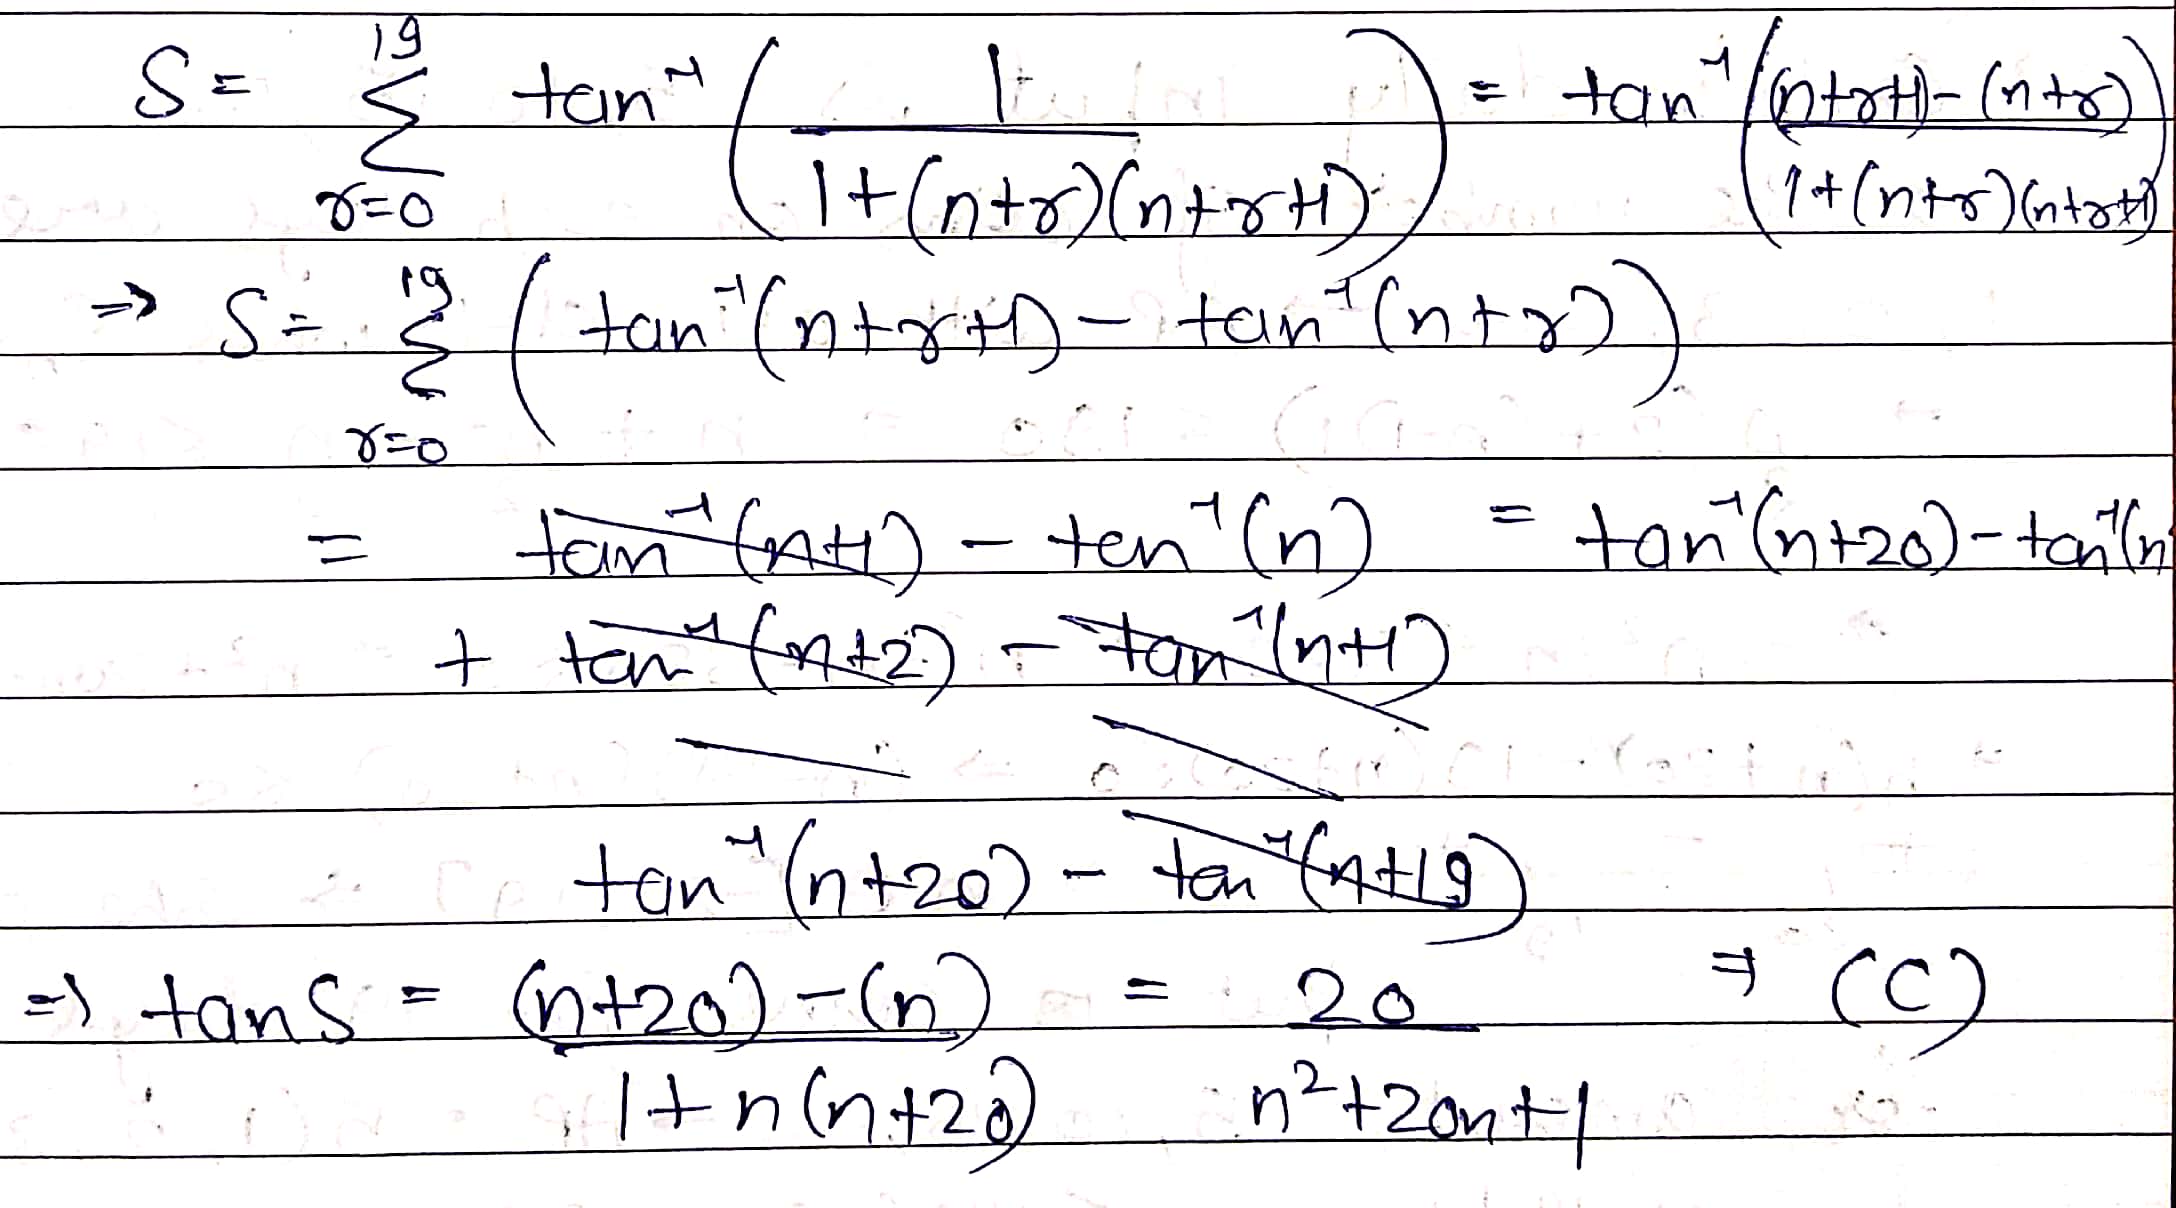 S = 19 Σ r=0 tan⁻¹ ( 1 / 1+(n+r)(n+r+1) ) = tan⁻¹ ( (n+r+1)-(n+r) / 1+(n+r)(n+r+1) )
⇒ S = 19 Σ r=0 ( tan⁻¹(n+r+1) - tan⁻¹(n+r) )
= tan⁻¹(n+1) - tan⁻¹(n) = tan⁻¹(n+20) - tan⁻¹(n
+ tan⁻¹(n+2) - tan⁻¹(n+1)
tan⁻¹(n+20) - tan⁻¹(n+19)
⇒ tan S = (n+20)-(n) / 1+n(n+20) = 20 / n²+20n+1 ⇒ (C)